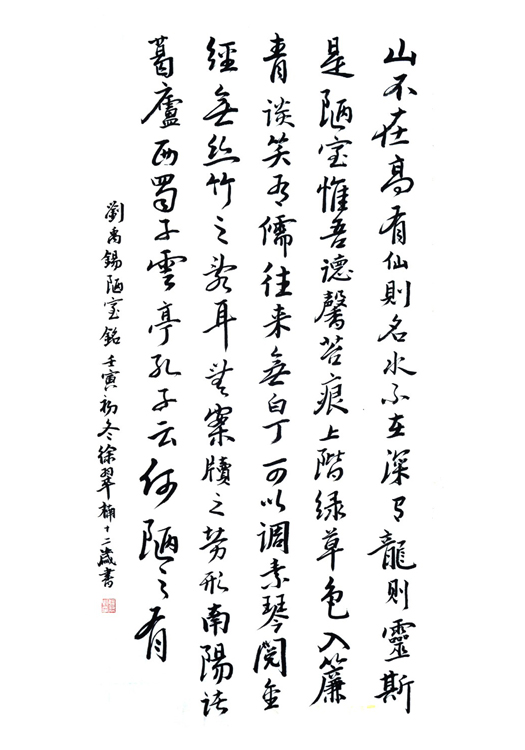 山不在高有仙則名水不在深有龍則靈斯
是陋室惟吾德馨苔痕上階緑草色入簾
青談笑有儒往来無白丁可以调素琴閲金
經無丝竹之亂耳無案牘之劳形南陽诸
葛廬西蜀子雲亭孔子云何陋之有
劉禹錫陋室銘壬寅初冬徐翠楠十二歲書